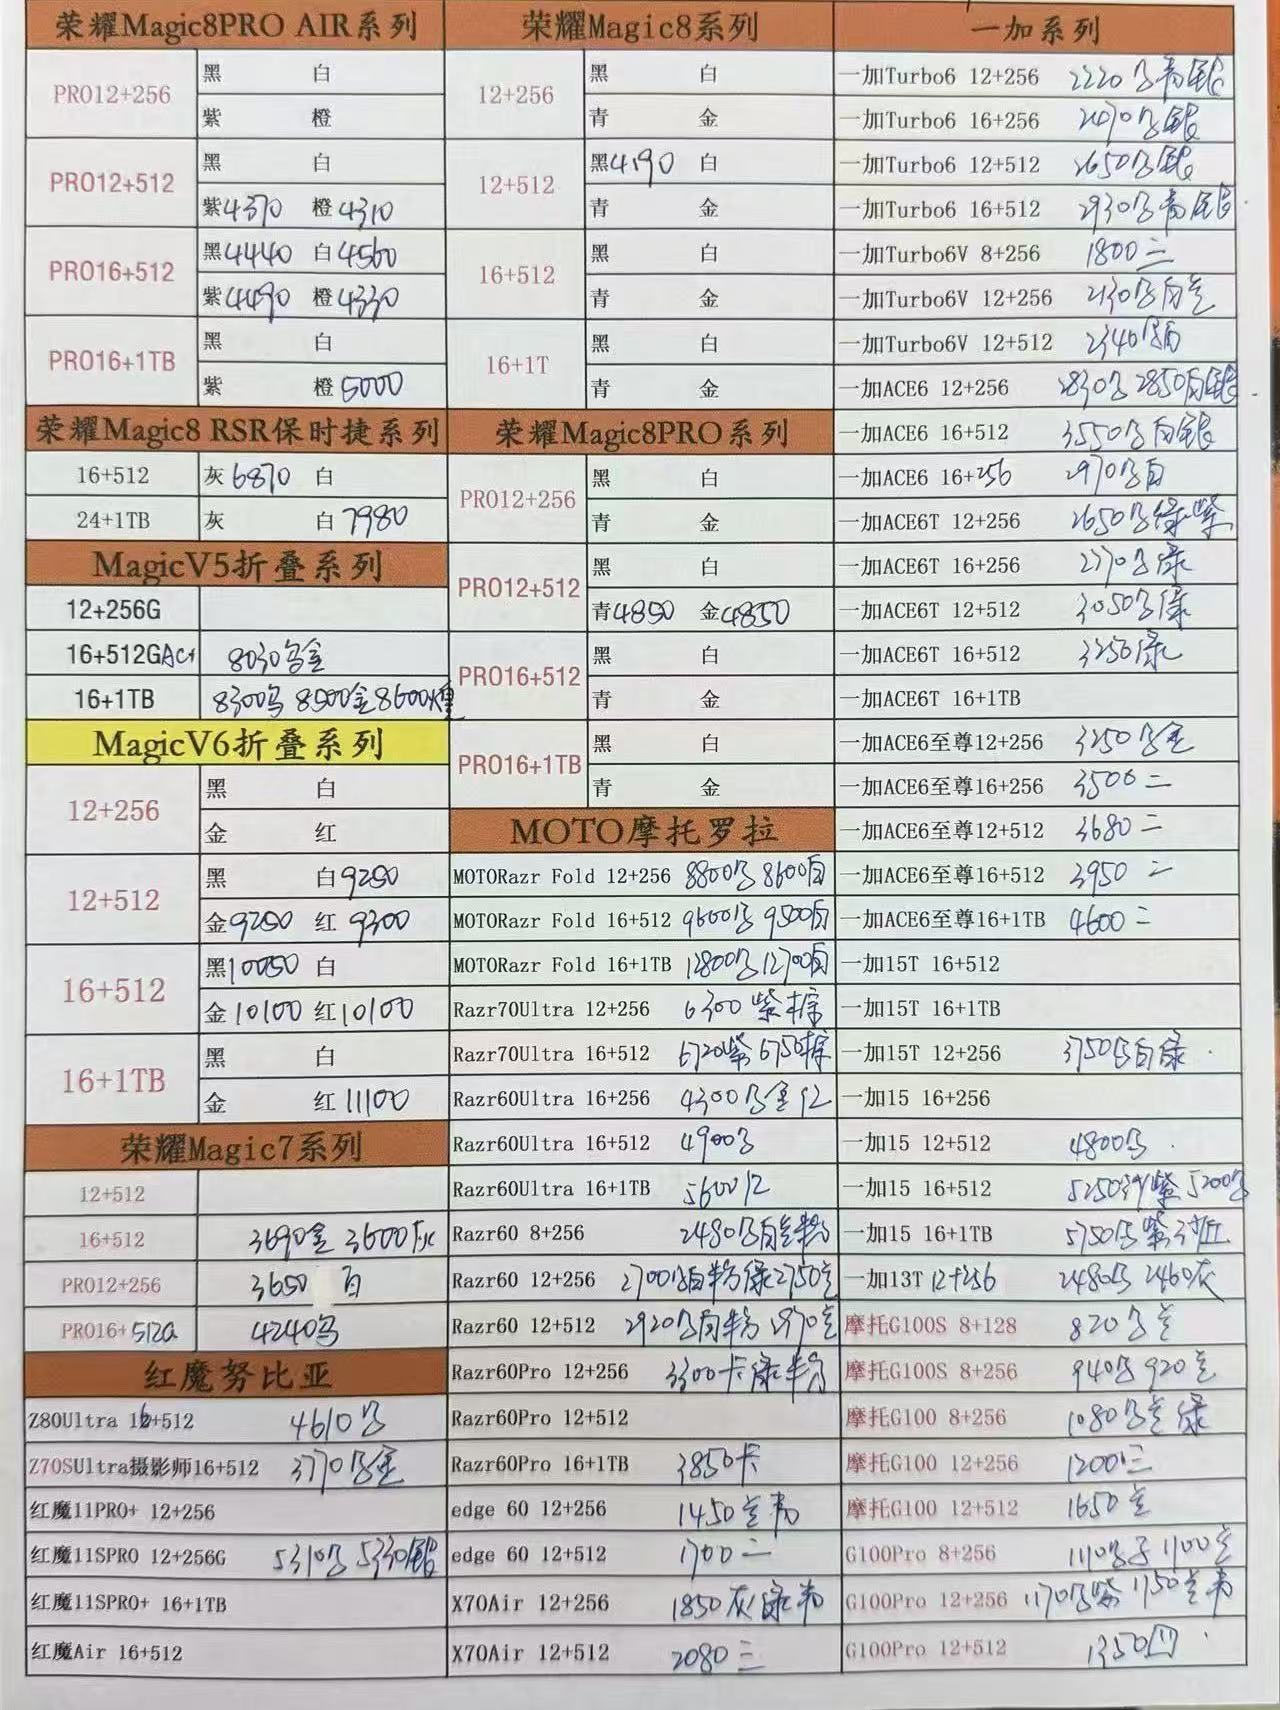 荣耀Magic8PRO AIR系列
PRO12+256
黑 白
紫 橙
PRO12+512
黑 白
紫4370 橙4310
PRO16+512
黑4440 白4560
紫4490 橙4330
PRO16+1TB
黑 白
紫 橙5000
荣耀Magic8 RSR保时捷系列
16+512 灰6870 白
24+1TB 灰 白7980
MagicV5折叠系列
12+256G
16+512G 8030 金
16+1TB 8300 8500金8600
MagicV6折叠系列
12+256
黑 白
金 红
12+512
黑 白9250
金9250 红9300
16+512
黑10050 白
金10100 红10100
16+1TB
黑 白
金 红11100
荣耀Magic7系列
12+512
16+512 3690金 3600灰
PRO12+256 3650 白
PRO16+512G 4240
红魔努比亚
Z80Ultra 16+512 4610
Z70SUltra摄影师16+512 3770 金
红魔11PRO+ 12+256
红魔11SPRO 12+256G 5310 5330银
红魔11SPRO+ 16+1TB
红魔Air 16+512
荣耀Magic8系列
12+256
黑 白
青 金
12+512
黑4190 白
青 金
16+512
黑 白
青 金
16+1T
黑 白
青 金
荣耀Magic8PRO系列
PRO12+256
黑 白
青 金
PRO12+512
黑 白
青4850 金4850
PRO16+512
黑 白
青 金
PRO16+1TB
黑 白
青 金
MOTO摩托罗拉
MOTORazr Fold 12+256 8800 8600白
MOTORazr Fold 16+512 9600 9500白
MOTORazr Fold 16+1TB 12800 12700白
Razr70Ultra 12+256 6300 紫 棕
Razr70Ultra 16+512 6720紫 6750棕
Razr60Ultra 16+256 4300 金 红
Razr60Ultra 16+512 4900
Razr60Ultra 16+1TB 5600红
Razr60 8+256 2480 白 粉
Razr60 12+256 2700 白粉绿2750
Razr60 12+512 2920 白粉 2970
Razr60Pro 12+256 3300卡绿粉
Razr60Pro 12+512
Razr60Pro 16+1TB 3850卡
edge 60 12+256 1450
edge 60 12+512 1700二
X70Air 12+256 1850灰绿
X70Air 12+512 2080三
一加系列
一加Turbo6 12+256 2220 银
一加Turbo6 16+256 银
一加Turbo6 12+512 2650 银
一加Turbo6 16+512 2930 银
一加Turbo6V 8+256 1800三
一加Turbo6V 12+256 2130 白
一加Turbo6V 12+512 2340 白
一加ACE6 12+256 2830 2850白银
一加ACE6 16+512 3550 白银
一加ACE6 16+256 2970 白
一加ACE6T 12+256 2650 绿紫
一加ACE6T 16+256 2770 绿
一加ACE6T 12+512 3050 绿
一加ACE6T 16+512 3250绿
一加ACE6T 16+1TB
一加ACE6至尊12+256 3250 金
一加ACE6至尊16+256 3500二
一加ACE6至尊12+512 3680二
一加ACE6至尊16+512 3950二
一加ACE6至尊16+1TB 4600二
一加15T 16+512
一加15T 16+1TB
一加15T 12+256 3750 白绿
一加15 16+256
一加15 12+512 4800
一加15 16+512 5250 紫 5200
一加15 16+1TB 5750 紫
一加13T 12+256 2480 2460灰
摩托G100S 8+128 820
摩托G100S 8+256 940 920
摩托G100 8+256 1080 绿
摩托G100 12+256 1200三
摩托G100 12+512 1650
G100Pro 8+256 1110 1100
G100Pro 12+256 1170 紫 1150
G100Pro 12+512 1350四